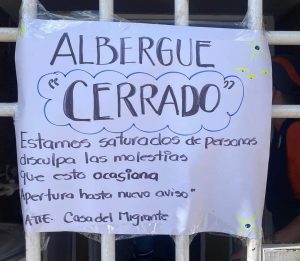 ALBERGUE
"CERRADO"
Estamos saturados de personas
disculpa las molestias
que esto ocasiona
Apertura hasta nuevo aviso"
ATTE. Casa del Migrante